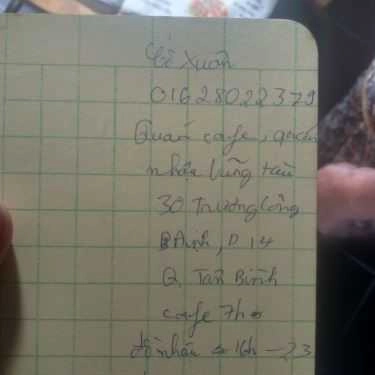 Cô Xuân
01628022379
Quán cafe, quán
nhậu Vũng Tàu
30 Trương Công
Định, P 14
Q. Tân Bình
cafe 7h
đồ nhậu 16h - 23